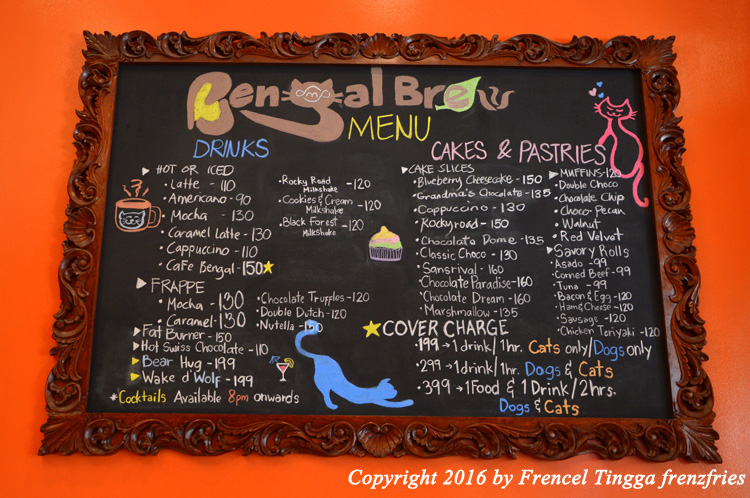 Bengal Brew
MENU
DRINKS
HOT OR ICED
• Latte - 110
• Americano - 90
• Mocha - 130
• Caramel Latte - 130
• Cappuccino - 110
• Cafe Bengal - 150
• Rocky Road Milkshake - 120
• Cookies & Cream Milkshake - 120
• Black Forest Milkshake - 120
FRAPPE
• Mocha - 130
• Caramel - 130
• Chocolate Truffles - 120
• Double Dutch - 120
• Nutella - 130
Fat Burner - 150
Hot Swiss Chocolate - 110
Bear Hug - 199
Wake d' Wolf - 199
*Cocktails Available 8pm onwards
CAKES & PASTRIES
CAKE SLICES
• Blueberry Cheesecake - 150
• Grandma's Chocolate - 135
• Cappuccino - 130
• Rockyroad - 150
• Chocolate Dome - 135
• Classic Choco - 130
• Sansrival - 160
• Chocolate Paradise - 160
• Chocolate Dream - 160
• Marshmallow - 135
MUFFINS - 120
• Double Choco
• Chocolate Chip
• Choco-Pecan
• Walnut
• Red Velvet
SAVORY ROLLS
Asado - 99
Corned Beef - 99
Tuna - 99
Bacon & Egg - 120
Ham & Cheese - 120
Sausage - 120
Chicken Teriyaki - 120
COVER CHARGE
• 199 → 1 drink / 1hr. Cats only/Dogs only
• 299 → 1 drink / 1hr. Dogs & Cats
• 399 → 1 Food & 1 Drink / 2hrs.
Dogs & Cats
Copyright 2016 by Frencel Tingga frenzfries